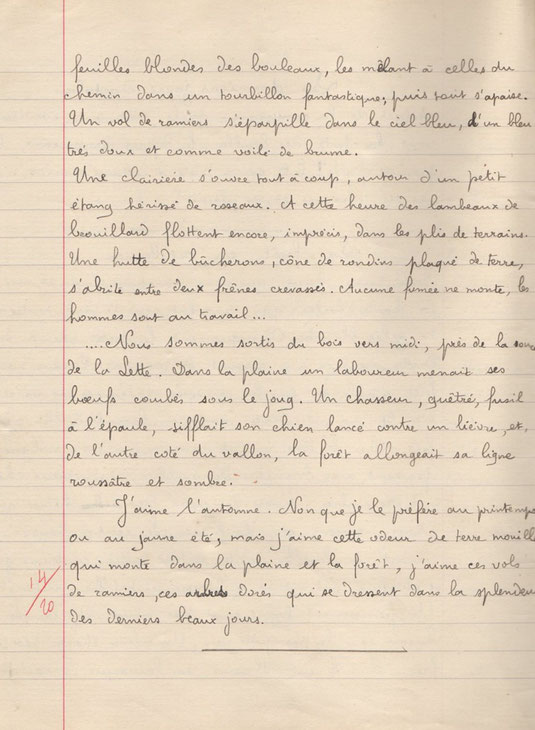 feuilles blondes des bouleaux, les mêlant à celles du
chemin dans un tourbillon fantastique, puis tout s'apaise.
Un vol de ramiers s'éparpille dans le ciel bleu, d'un bleu
très doux et comme voilé de brume.
Une clairière s'ouvre tout à coup, autour d'un petit
étang hérissé de roseaux. A cette heure des lambeaux de
brouillard flottent encore, imprécis, dans les plis de terrains.
Une hutte de bûcherons, cône de rondins plaqué de terre,
s'abrite entre deux frênes crevassés. Aucune fumée ne monte, les
hommes sont au travail...
....Nous sommes sortis du bois vers midi, près de la
de la Lette. Dans la plaine un laboureur menait ses
bœufs courbés sous le joug. Un chasseur, guêtré, fusil
à l'épaule, sifflait son chien lancé contre un lièvre, et,
de l'autre coté du vallon, la forêt allongeait sa ligne
roussâtre et sombre.
J'aime l'automne. Non que je le préfère au printemps
ou au jaune été, mais j'aime cette odeur de terre mouill
qui monte dans la plaine et la forêt, j'aime ces vols
de ramiers, ces arbres dorés qui se dressent dans la splendeur
des derniers beaux jours.
14/20